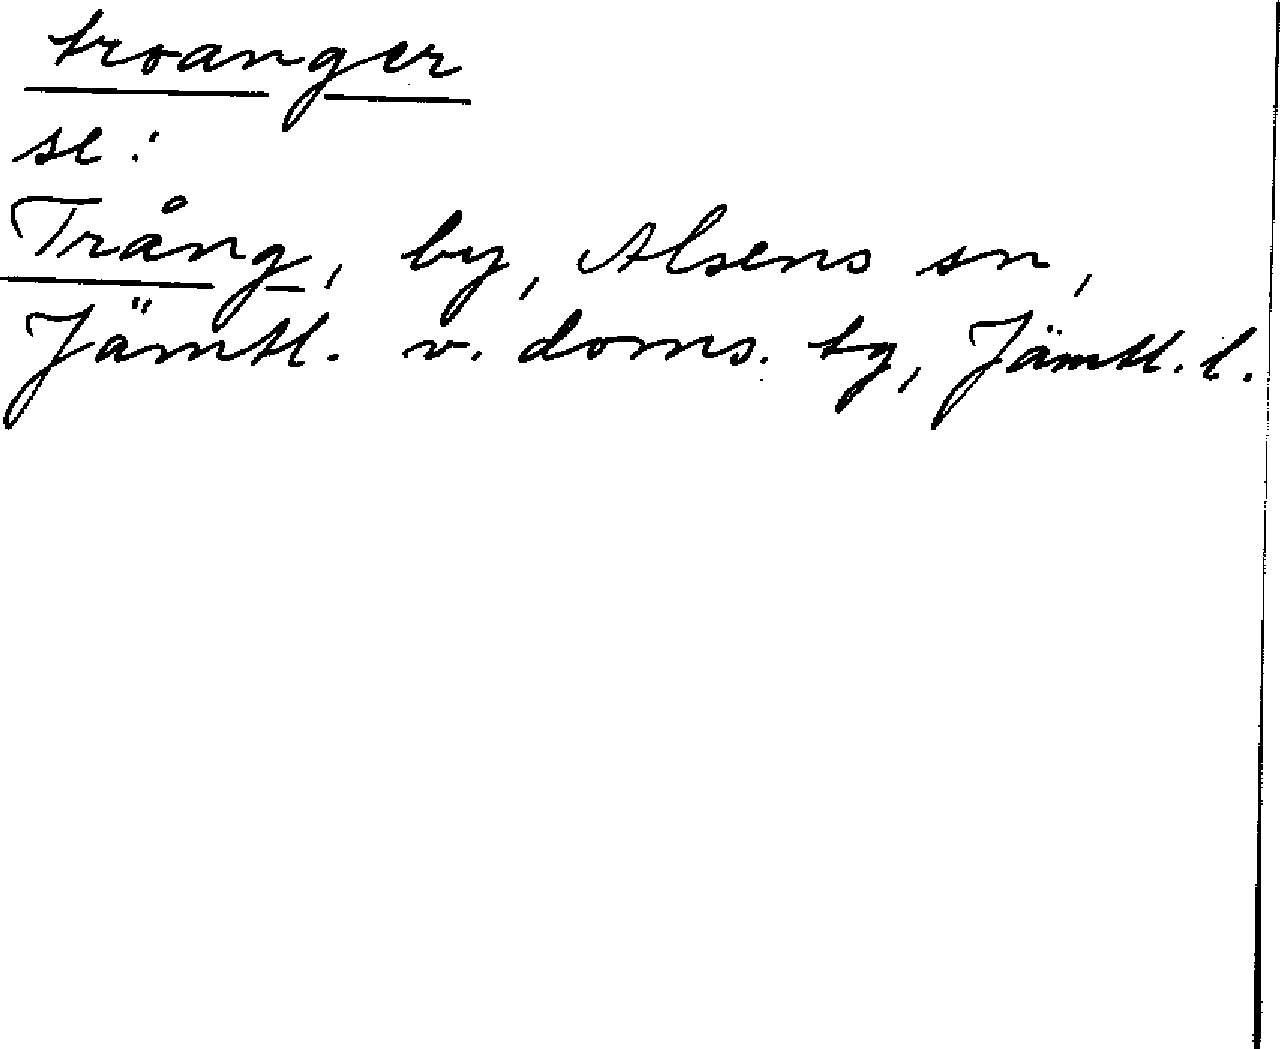 troanger
se:
Trång, by, Alsens sn,
Jämtl. v. doms. tg, Jämtl. l.